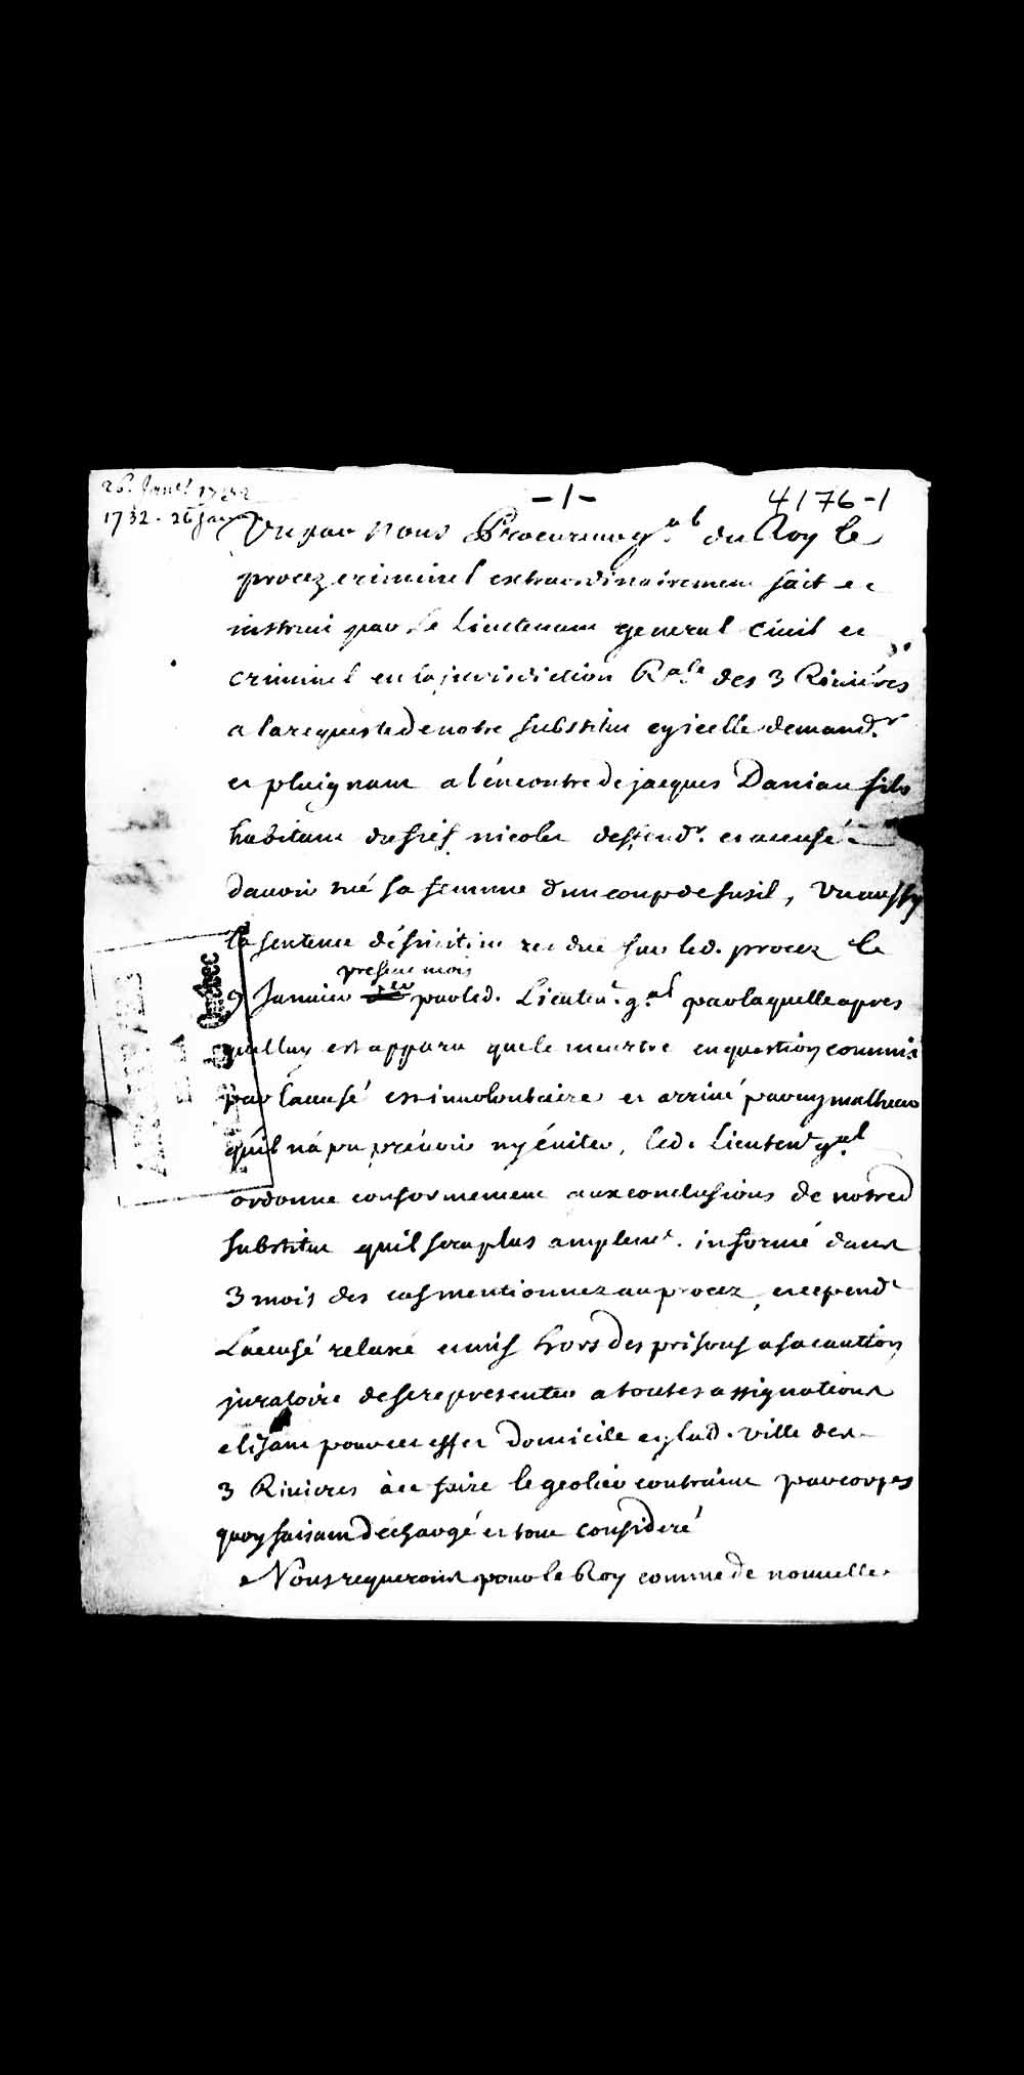 26. Janv.r 1732
- 1 -
4176-1
1732. 26 Janv
Vu par nous Procureur g.al du Roy le
procez criminel extraordinairement fait et
instruit par le Lieutenant general civil et
criminel en la jurisdiction R.ale des 3 Rivières
a la requeste de notre substitut en icelle demand.r
et plaignant a l'éncontre de jacques Daniau fils
habitant du fief nicolet deffend.r et accusé
davoir tué sa femme d'un coup de fusil, Vu aussy
la sentence définitive rendue sur led. procez le
present mois
9 Janvier par led. Lieuten.t g.al par laquelle apres
quil luy est apparu que le meurtre en question commis
par l'accusé est involontaire et arrivé par un malheur
qu'il n'a pu prévoir ny éviter, led. Lieuten.t g.al
ordonne conformement aux conclusions de notred
substitut quil sera plus amplem.t informé dans
3 mois des cas mentionnez au procez, et cepend.t
L'accusé relaxé et mis hors des prisons a sa caution
juratoire de se representer a toutes assignations
elisant pour cet effet domicile en lad. ville des
3 Rivieres à ce faire le geolier contraint par corps
quoy faisant déchargé et tout consideré
Nous requerons pour le Roy comme de nouvelle
Québec